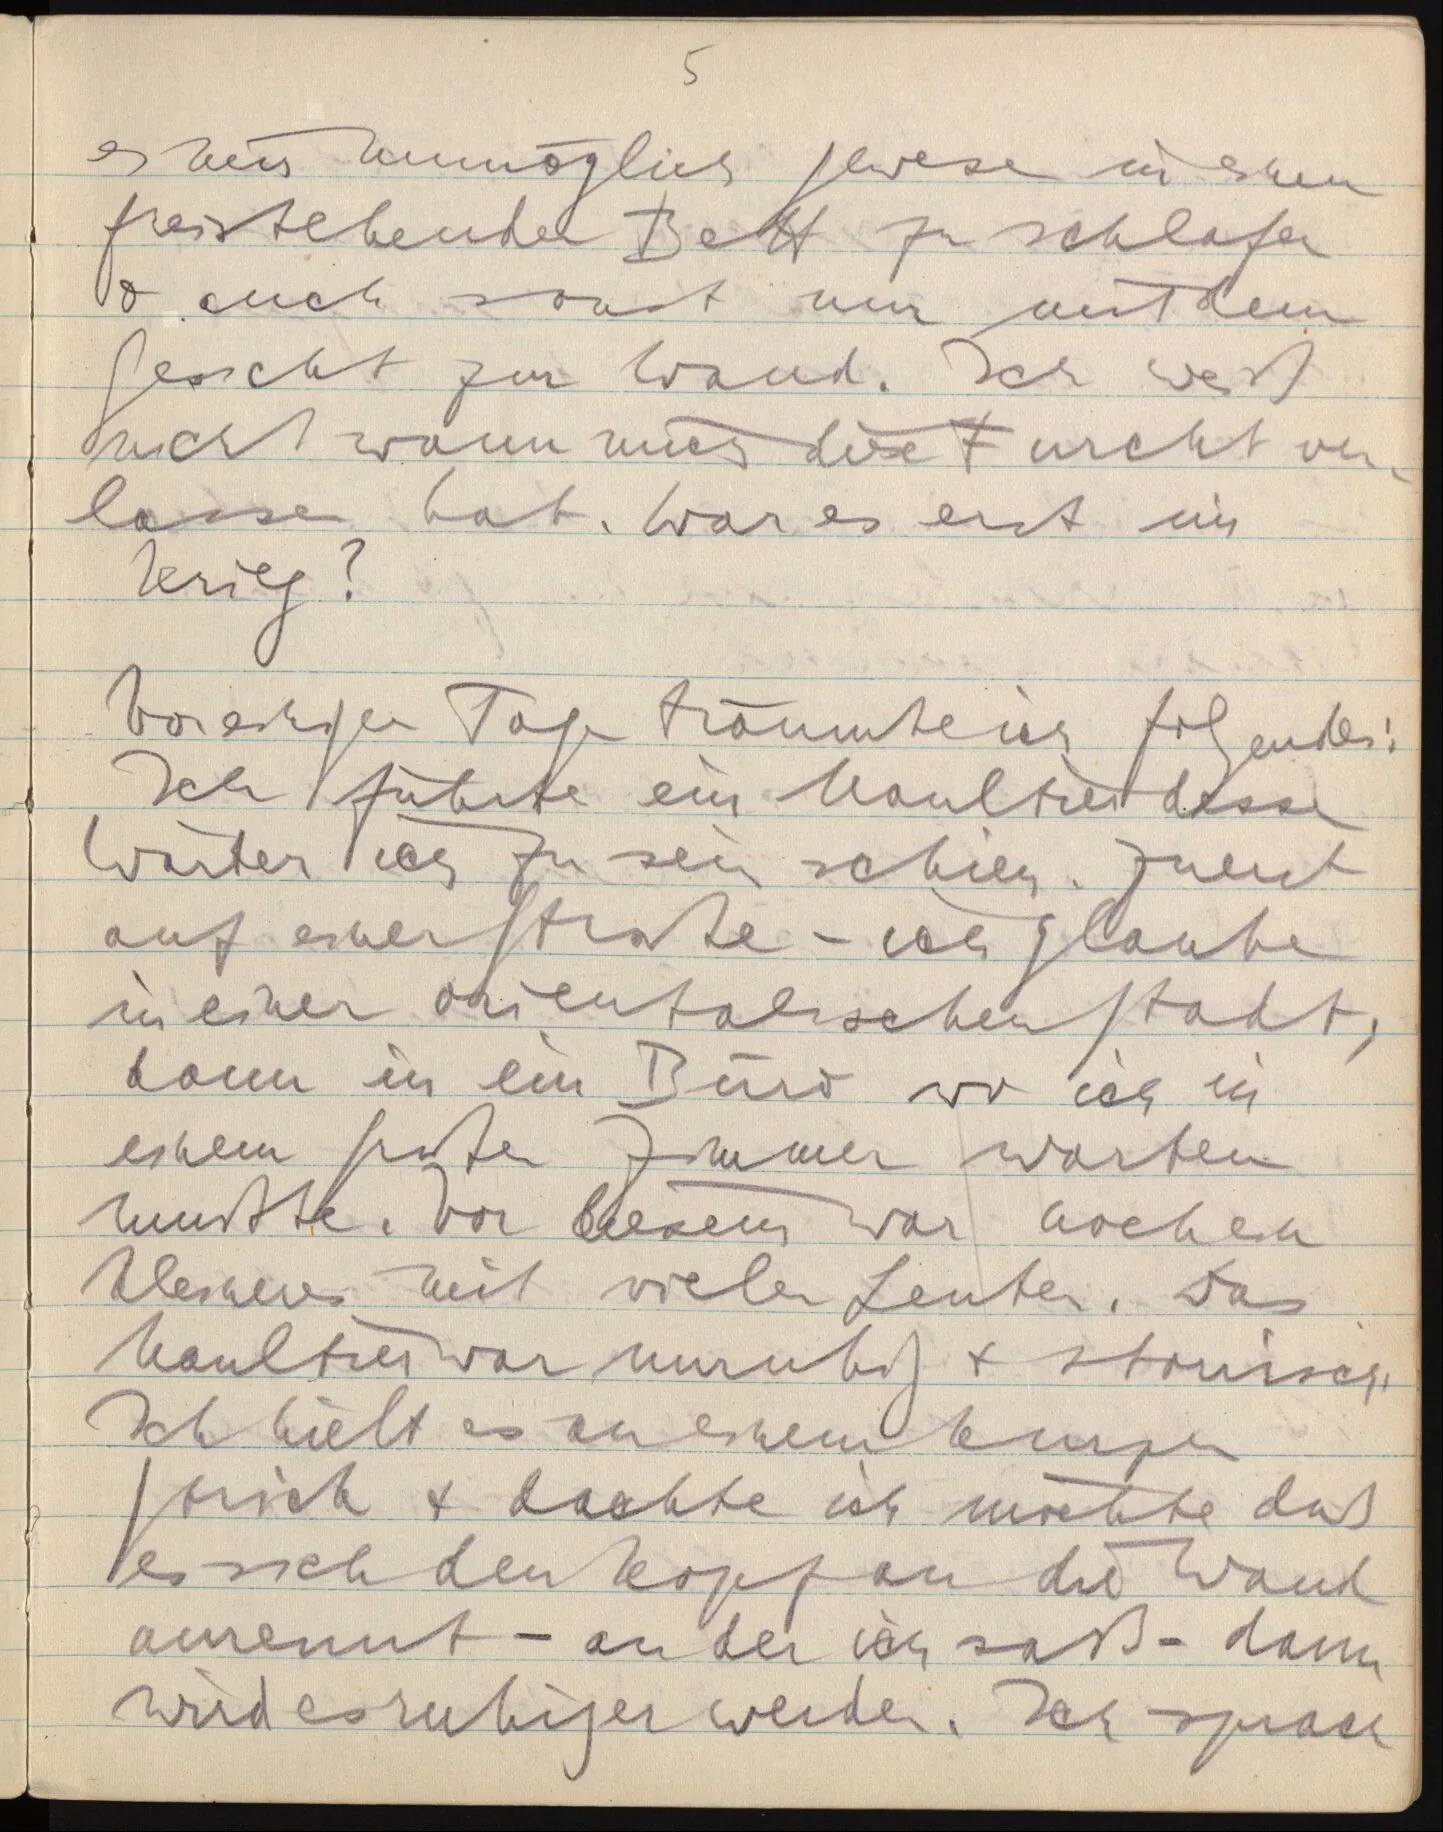 5
es mir unmöglich gewesen in einem
freistehenden Bett zu schlafen
& auch sonst nur mit dem
Gesicht zur Wand. Ich weiß
nicht wann mich diese Furcht ver-
lassen hat. War es erst im
Krieg?
Vor einigen Tagen träumte ich folgendes:
Ich führte ein Maultier dessen
Wärter ich zu sein schien. Zuerst
auf einer Straße – ich glaube
in einer orientalischen Stadt,
dann in ein Büro wo ich in
einem großen Zimmer warten
mußte. Vor diesem war noch ein
kleineres mit vielen Leuten. Das
Maultier war unruhig & störrisch.
Ich hielt es an einem kurzen
Strick & dachte ich möchte daß
es sich den Kopf an die Wand
anrennt – an der ich saß – dann
wird es ruhiger werden. Ich sprach